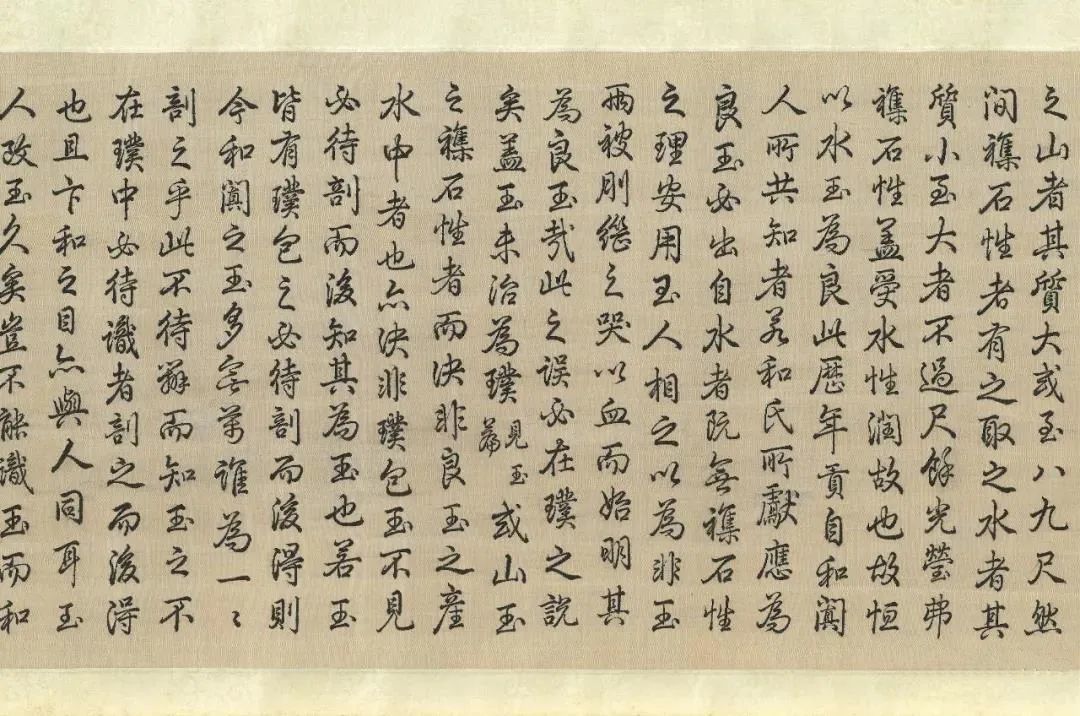 之山者其質大或至八九尺然
間襍石性者有之取之水者其
質小至大者不過尺餘光瑩弗
襍石性蓋受水性潤故也故恒
以水玉為良此歷年貢自和闐
人所共知者若和氏所獻應為
良玉必出自水者既無襍石性
之理安用玉人相之以為非玉
兩被刖繼之哭以血而始明其
為良玉哉此之誤必在璞之說
矣蓋玉未治為璞見玉篇或山玉
之襍石性者而決非良玉之產
水中者也亦決非璞包玉不見
必待剖而後知其為玉也若玉
皆有璞包之必待剖而後得則
今和闐之玉多容萬誰為一〻
剖之乎此不待辨而知玉之不
在璞中必待識者剖之而後得
也且卞和之目亦與人同耳玉
人攻玉久矣豈不能識玉而和